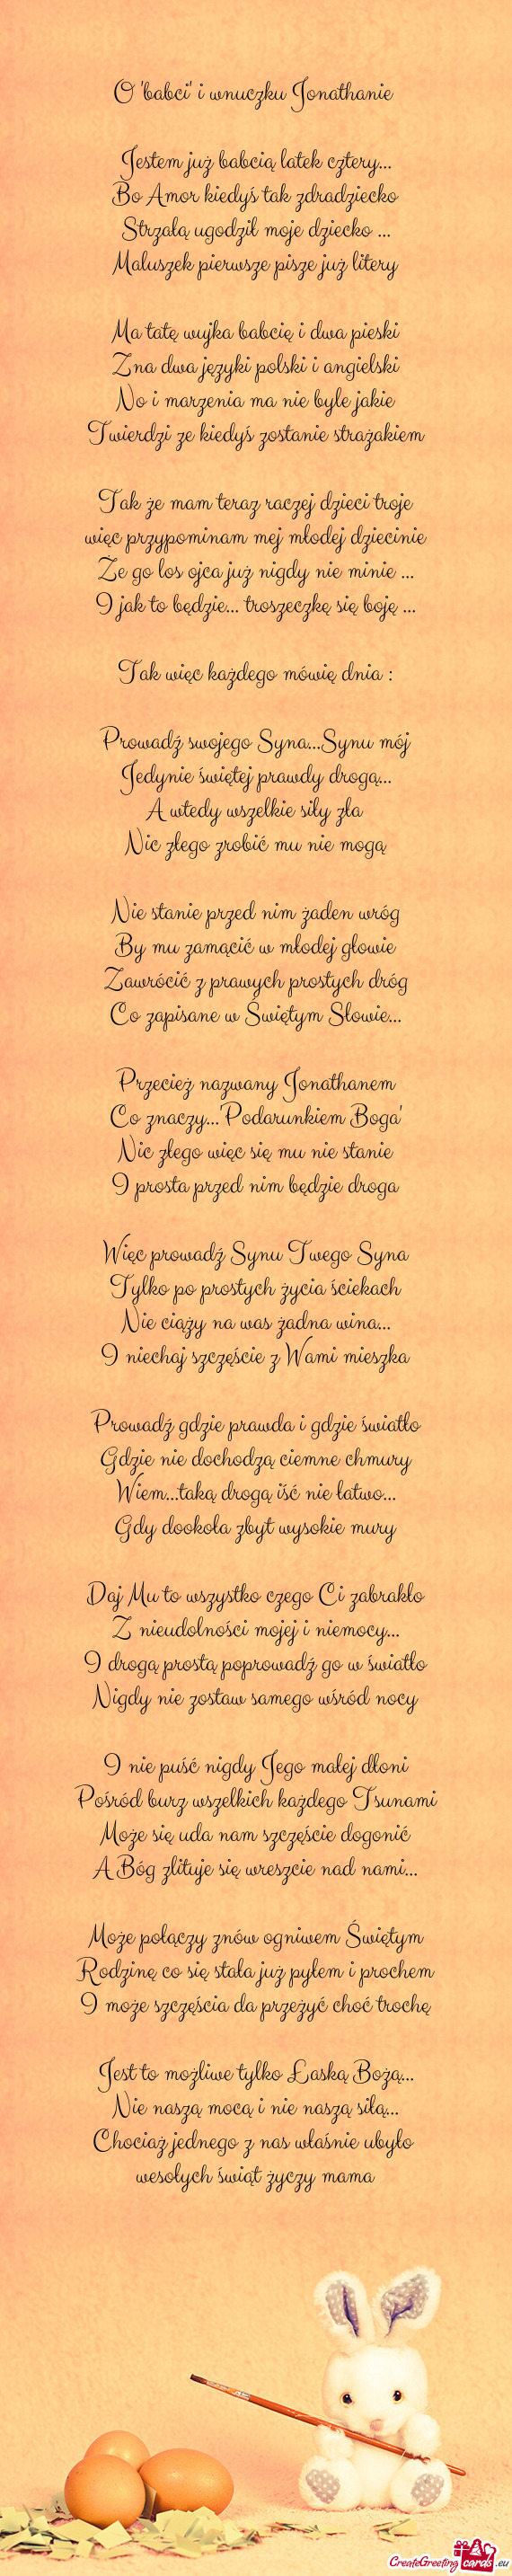 O 'babci' i wnuczku Jonathanie
Jestem już babcią latek cztery...
Bo Amor kiedyś tak zdradziecko
Strzałą ugodził moje dziecko ...
Maluszek pierwsze pisze już litery
Ma tatę wujka babcię i dwa pieski
Zna dwa języki polski i angielski
No i marzenia ma nie byle jakie
Twierdzi ze kiedyś zostanie strażakiem
Tak że mam teraz raczej dzieci troje
więc przypominam mej młodej dziecinie
Że go los ojca już nigdy nie minie ...
I jak to będzie... troszeczkę się boję ...
Tak więc każdego mówię dnia :
Prowadź swojego Syna...Synu mój
Jedynie świętej prawdy drogą...
A wtedy wszelkie siły zła
Nic złego zrobić mu nie mogą
Nie stanie przed nim żaden wróg
By mu zamącić w młodej głowie
Zawrócić z prawych prostych dróg
Co zapisane w Świętym Słowie...
Przecież nazwany Jonathanem
Co znaczy...'Podarunkiem Boga'
Nic złego więc się mu nie stanie
I prosta przed nim będzie droga
Więc prowadź Synu Twego Syna
Tylko po prostych życia ściekach
Nie ciąży na was żadna wina...
I niechaj szczęście z Wami mieszka
Prowadź gdzie prawda i gdzie światło
Gdzie nie dochodzą ciemne chmury
Wiem...taką drogą iść nie łatwo...
Gdy dookoła zbyt wysokie mury
Daj Mu to wszystko czego Ci zabrakło
Z nieudolności mojej i niemocy...
I drogą prostą poprowadź go w światło
Nigdy nie zostaw samego wśród nocy
I nie puść nigdy Jego małej dłoni
Pośród burz wszelkich każdego Tsunami
Może się uda nam szczęście dogonić
A Bóg zlituje się wreszcie nad nami...
Może połączy znów ogniwem Świętym
Rodzinę co się stała już pyłem i prochem
I może szczęścia da przeżyć choć trochę
Jest to możliwe tylko Łaską Bożą...
Nie naszą mocą i nie naszą siłą...
Chociaż jednego z nas właśnie ubyło
wesołych świąt życzy mama
CreateGreetingcards.eu